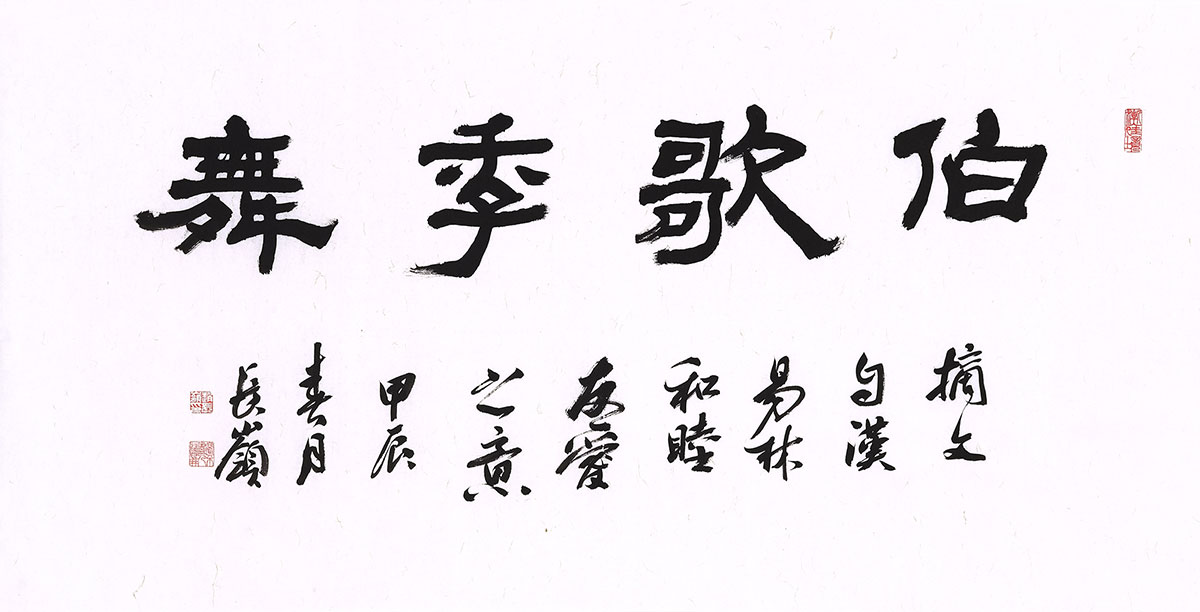 伯歌季舞
摘文
自漢
易林
和睦
友愛
之意
甲辰
春月
長嶺